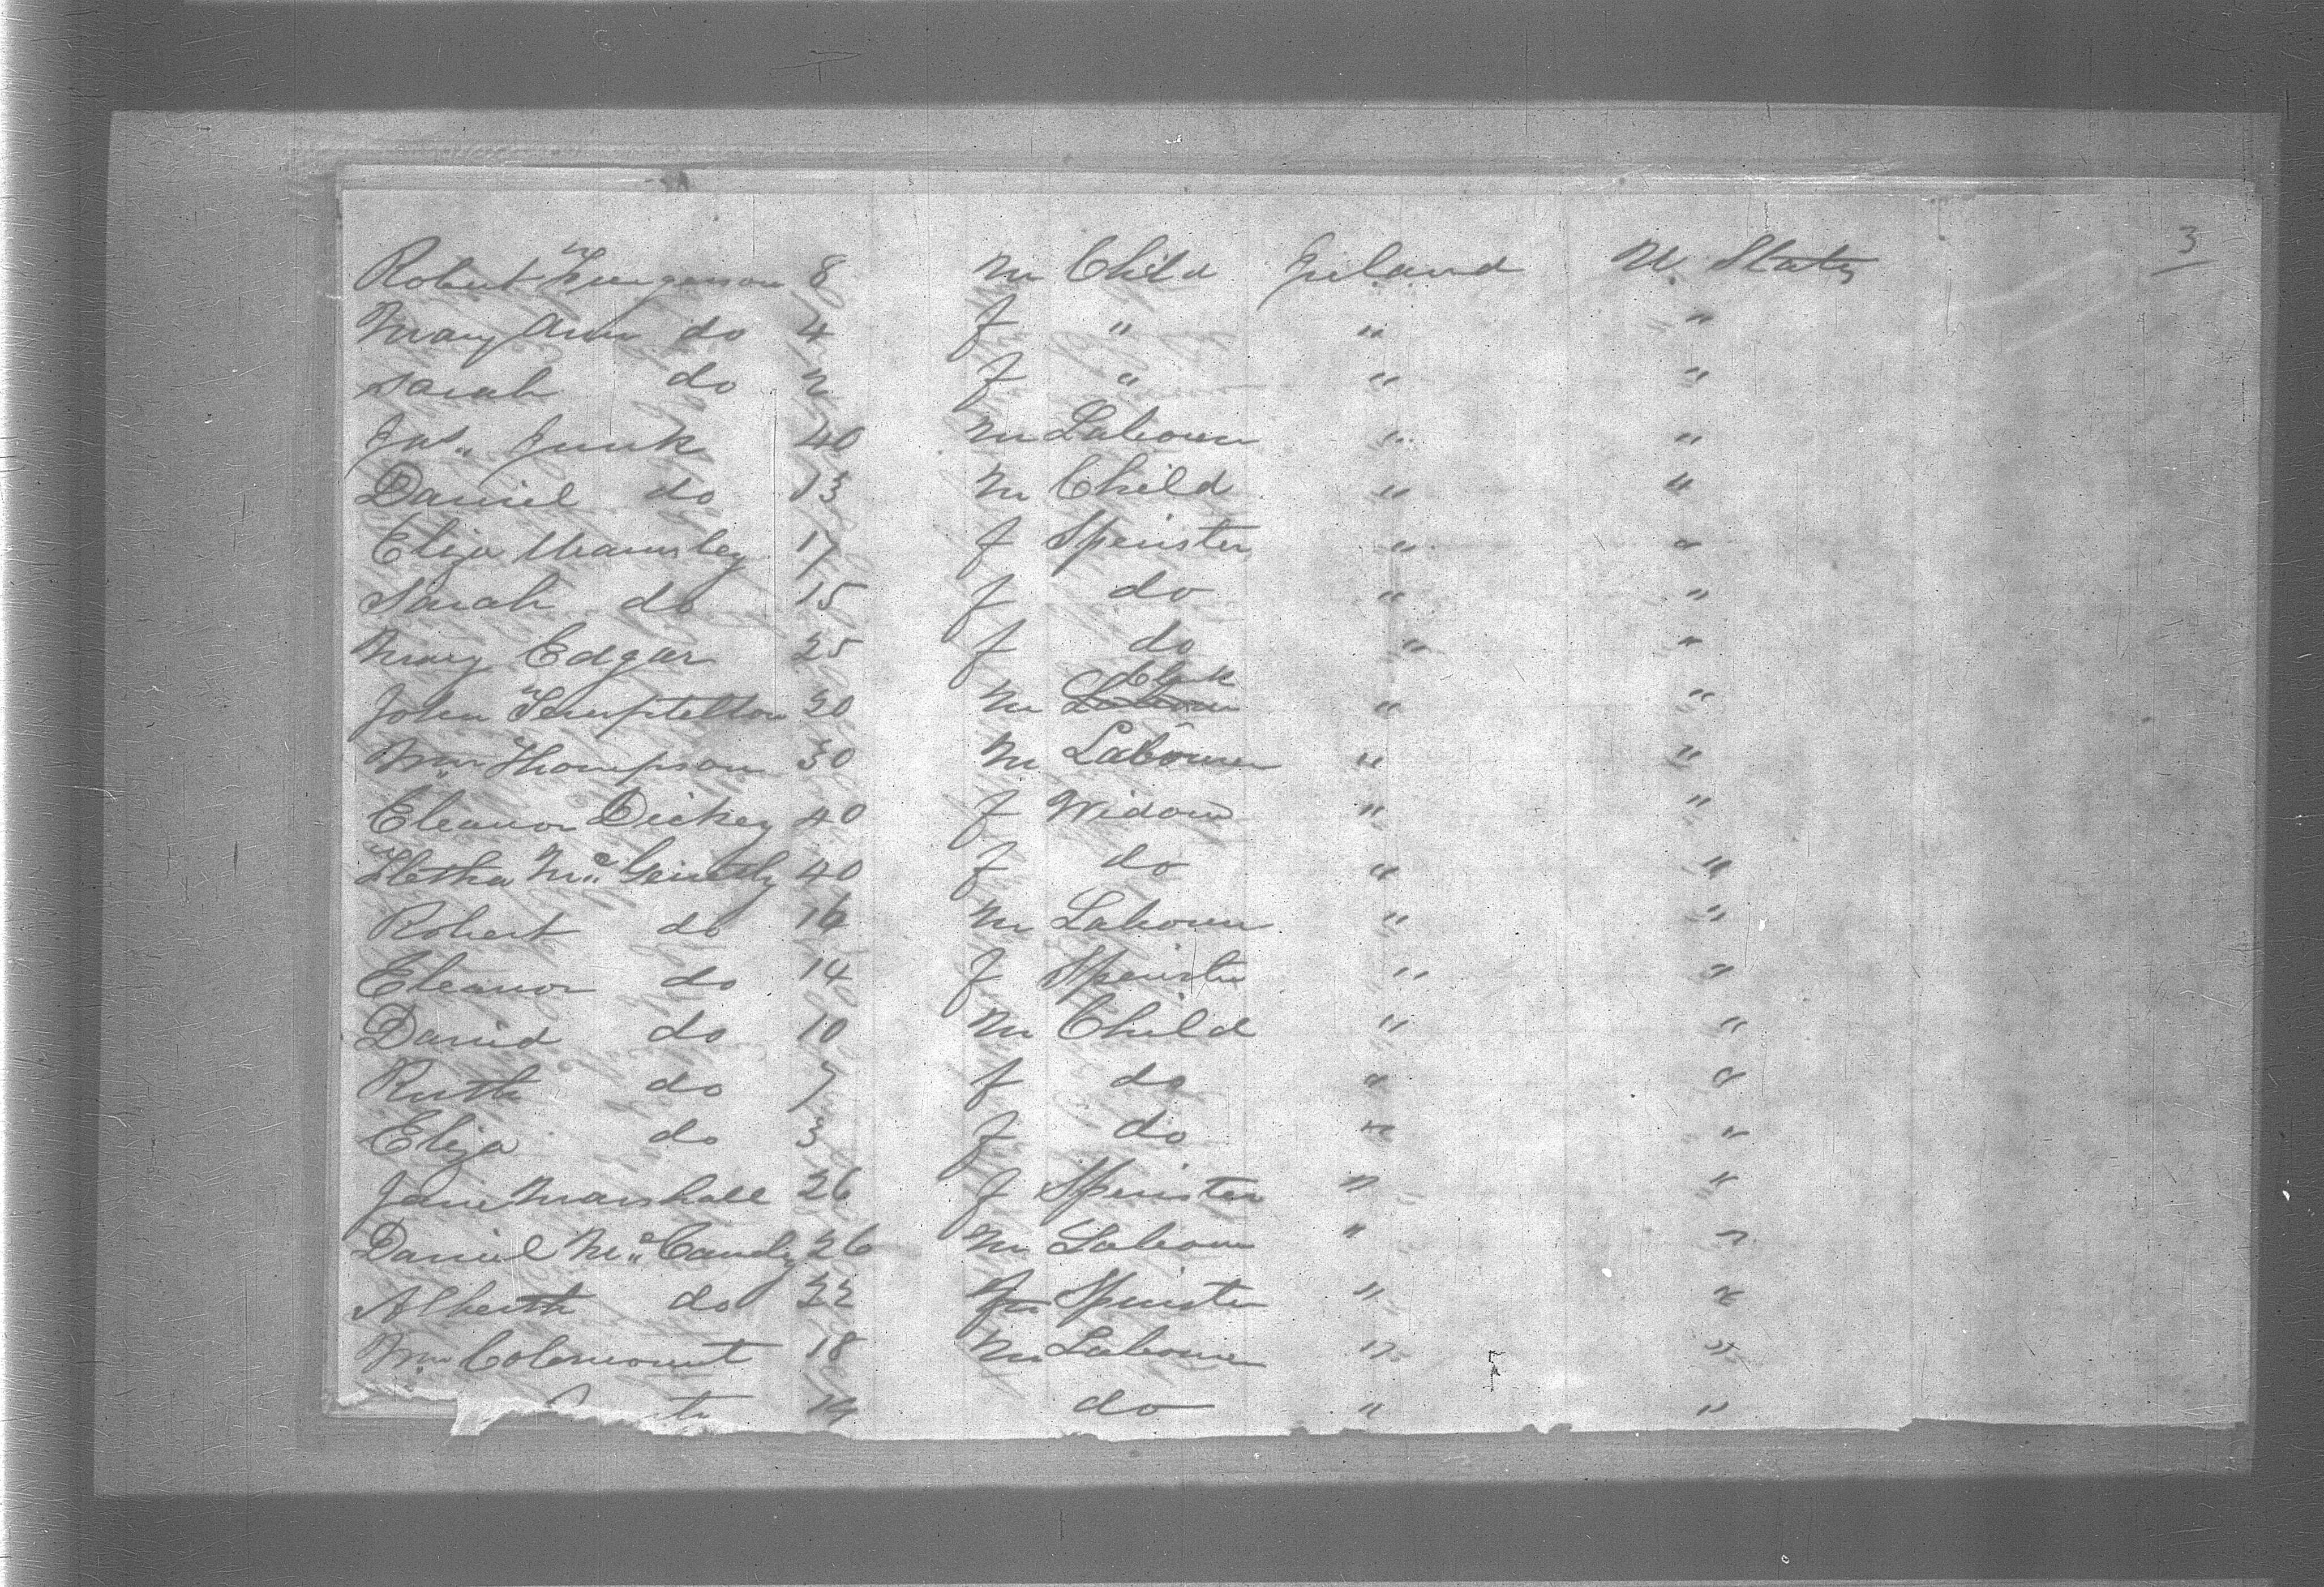 3
Robert Furgerson 8 m Child Ireland U. States
Mary Ann do 4 f " " "
Sarah do 2 f " " "
Jas. Junk 40 m Labourer " "
Daniel do 13 m Child " "
Eliza 17 f Spinster " "
Sarah do 15 f do " "
Mary Edgar 25 f do " "
Clerk
John 20 m Labourer " "
Wm. Thompson 30 m Labourer " "
Eleanor Dickey 40 f Widow " "
Mc 40 f do " "
Robert do 16 m Labourer " "
Eleanor do 14 f Spinster " "
David do 10 m Child " "
Ruth do 7 f do " "
Eliza do 3 f do " "
Jane Marshall 26 f Spinster " "
Daniel Mc Candy 26 m Labourer " "
do 22 f Spinster " "
Wm. 18 m Labourer " "
14 do " "